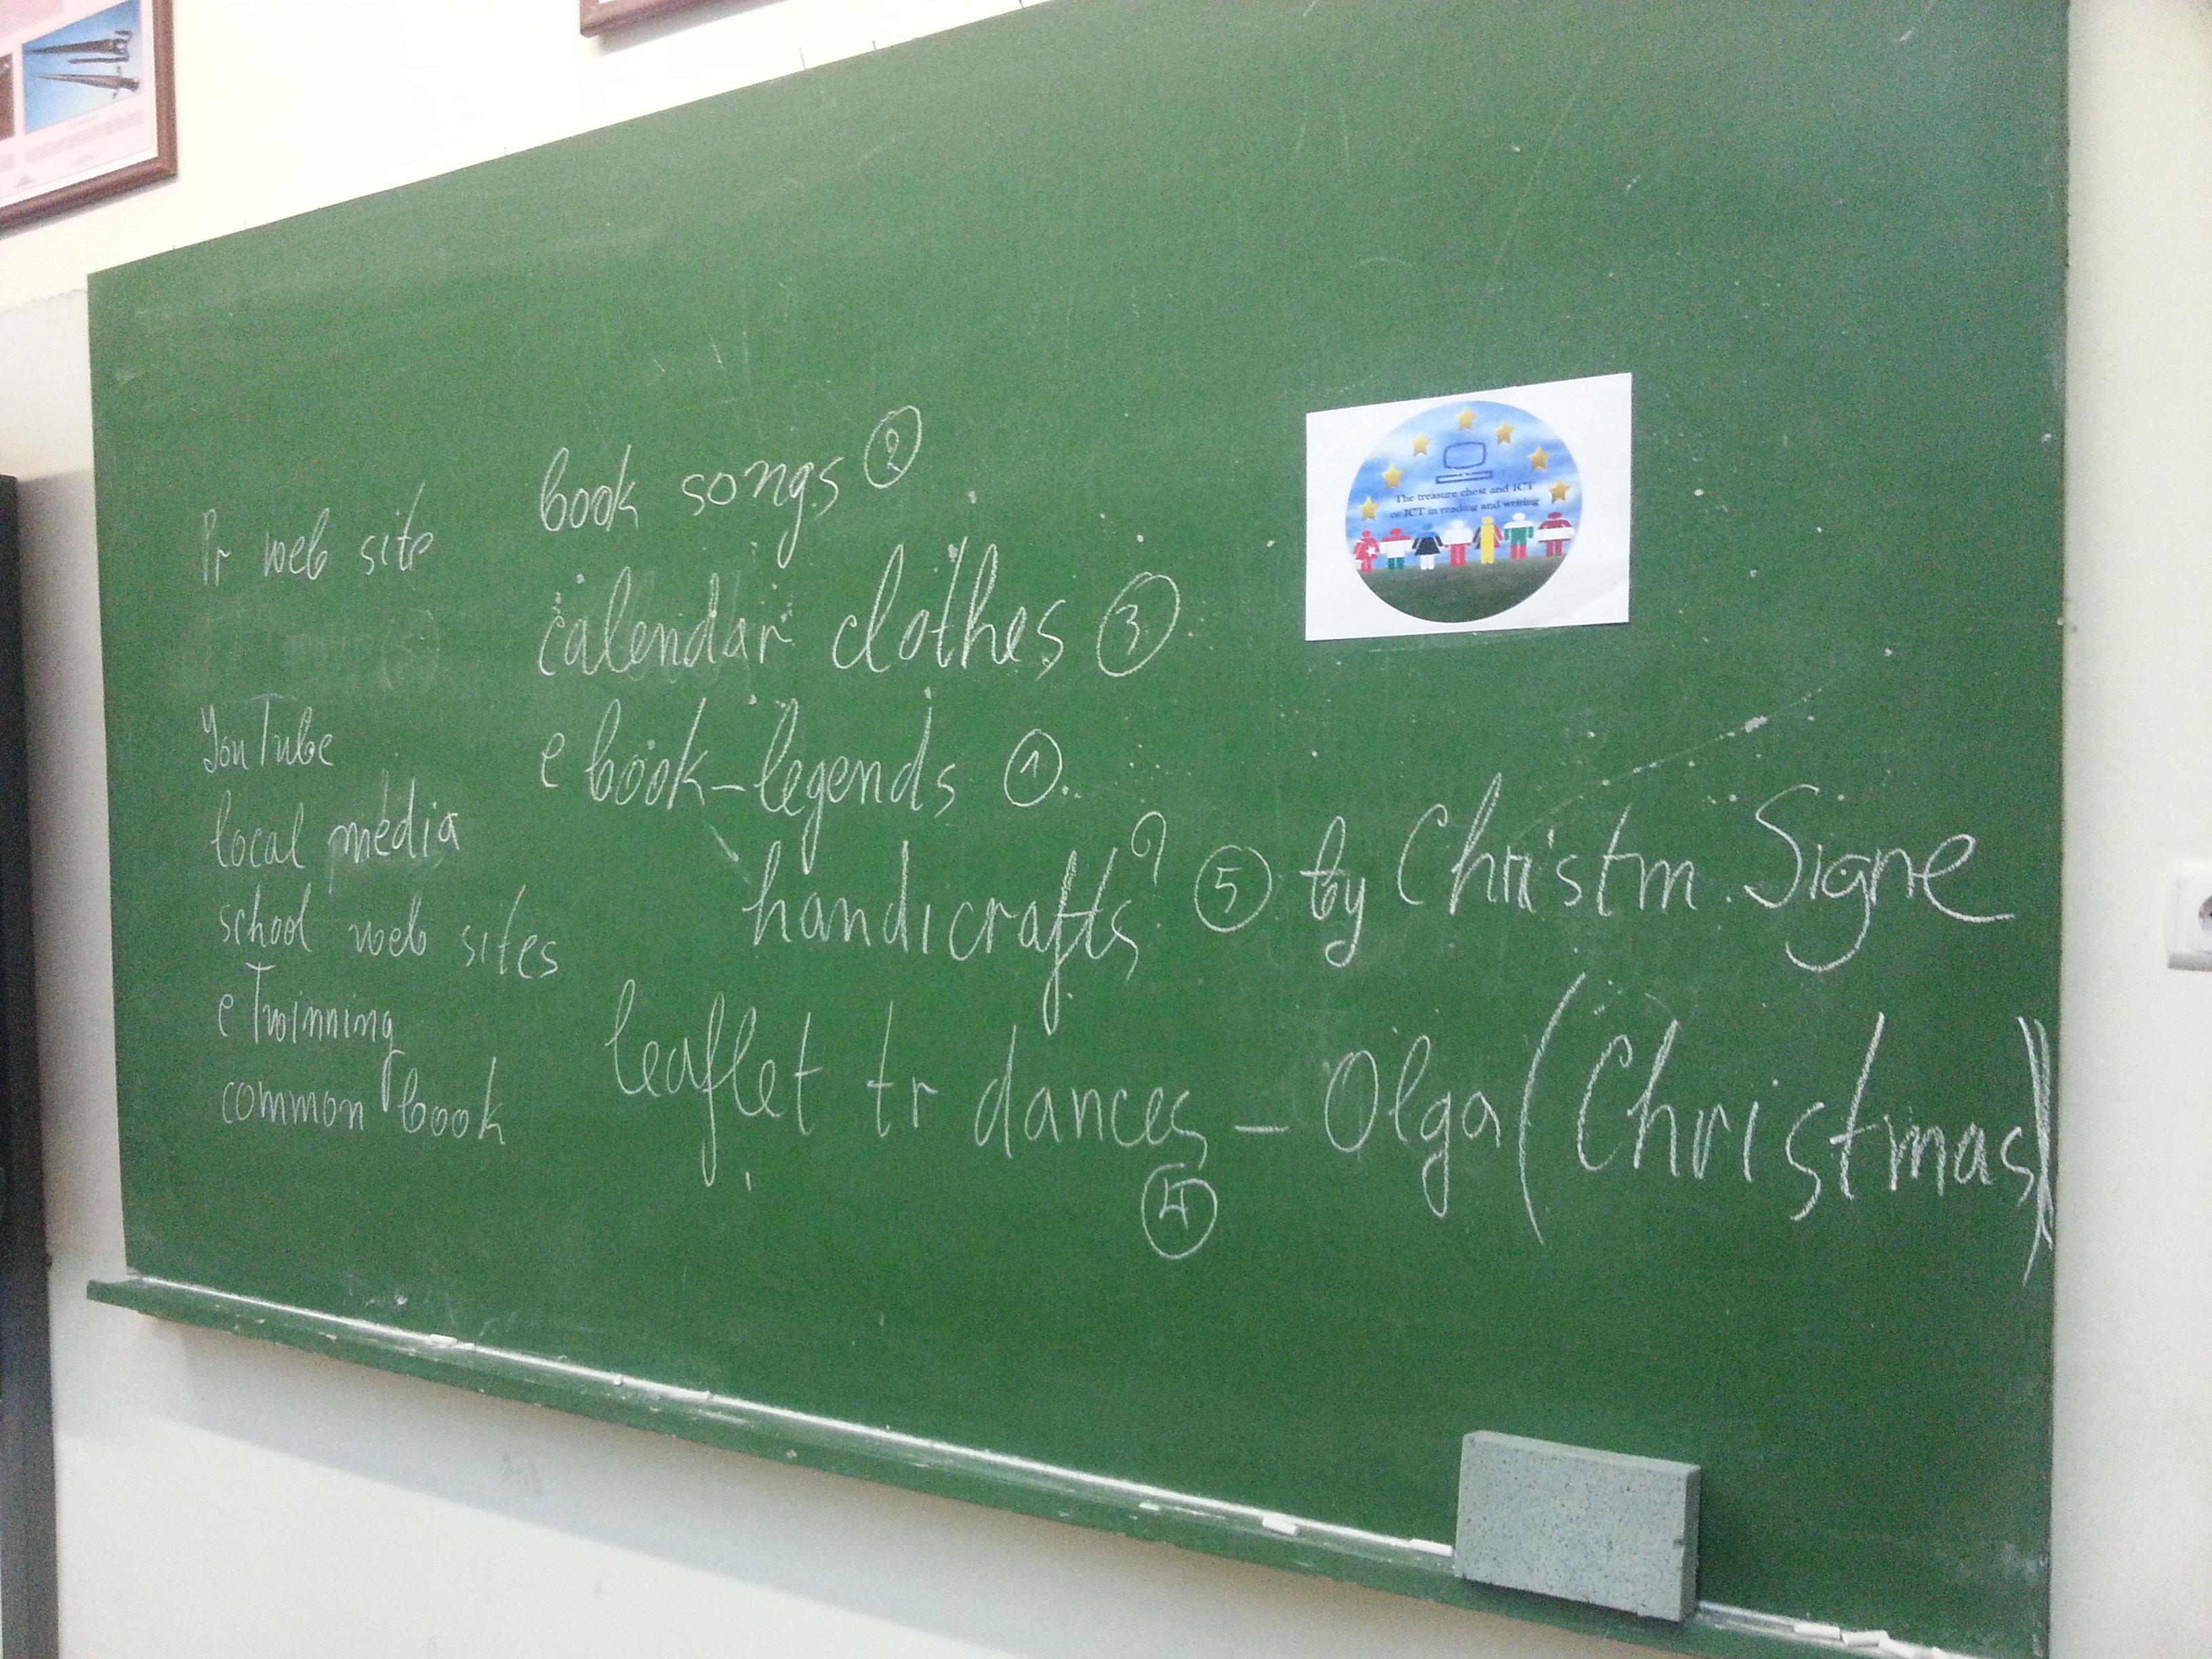 Pr web site
YouTube
local media
school web sites
eTwinning
common book
book songs ②
calendar clothes ③
e book-legends ①.
handicrafts? ⑤ by Christm. Signe
leaflet tr dances - Olga (Christmas)
④
The treasure chest and ICT
or ICT in reading and writing